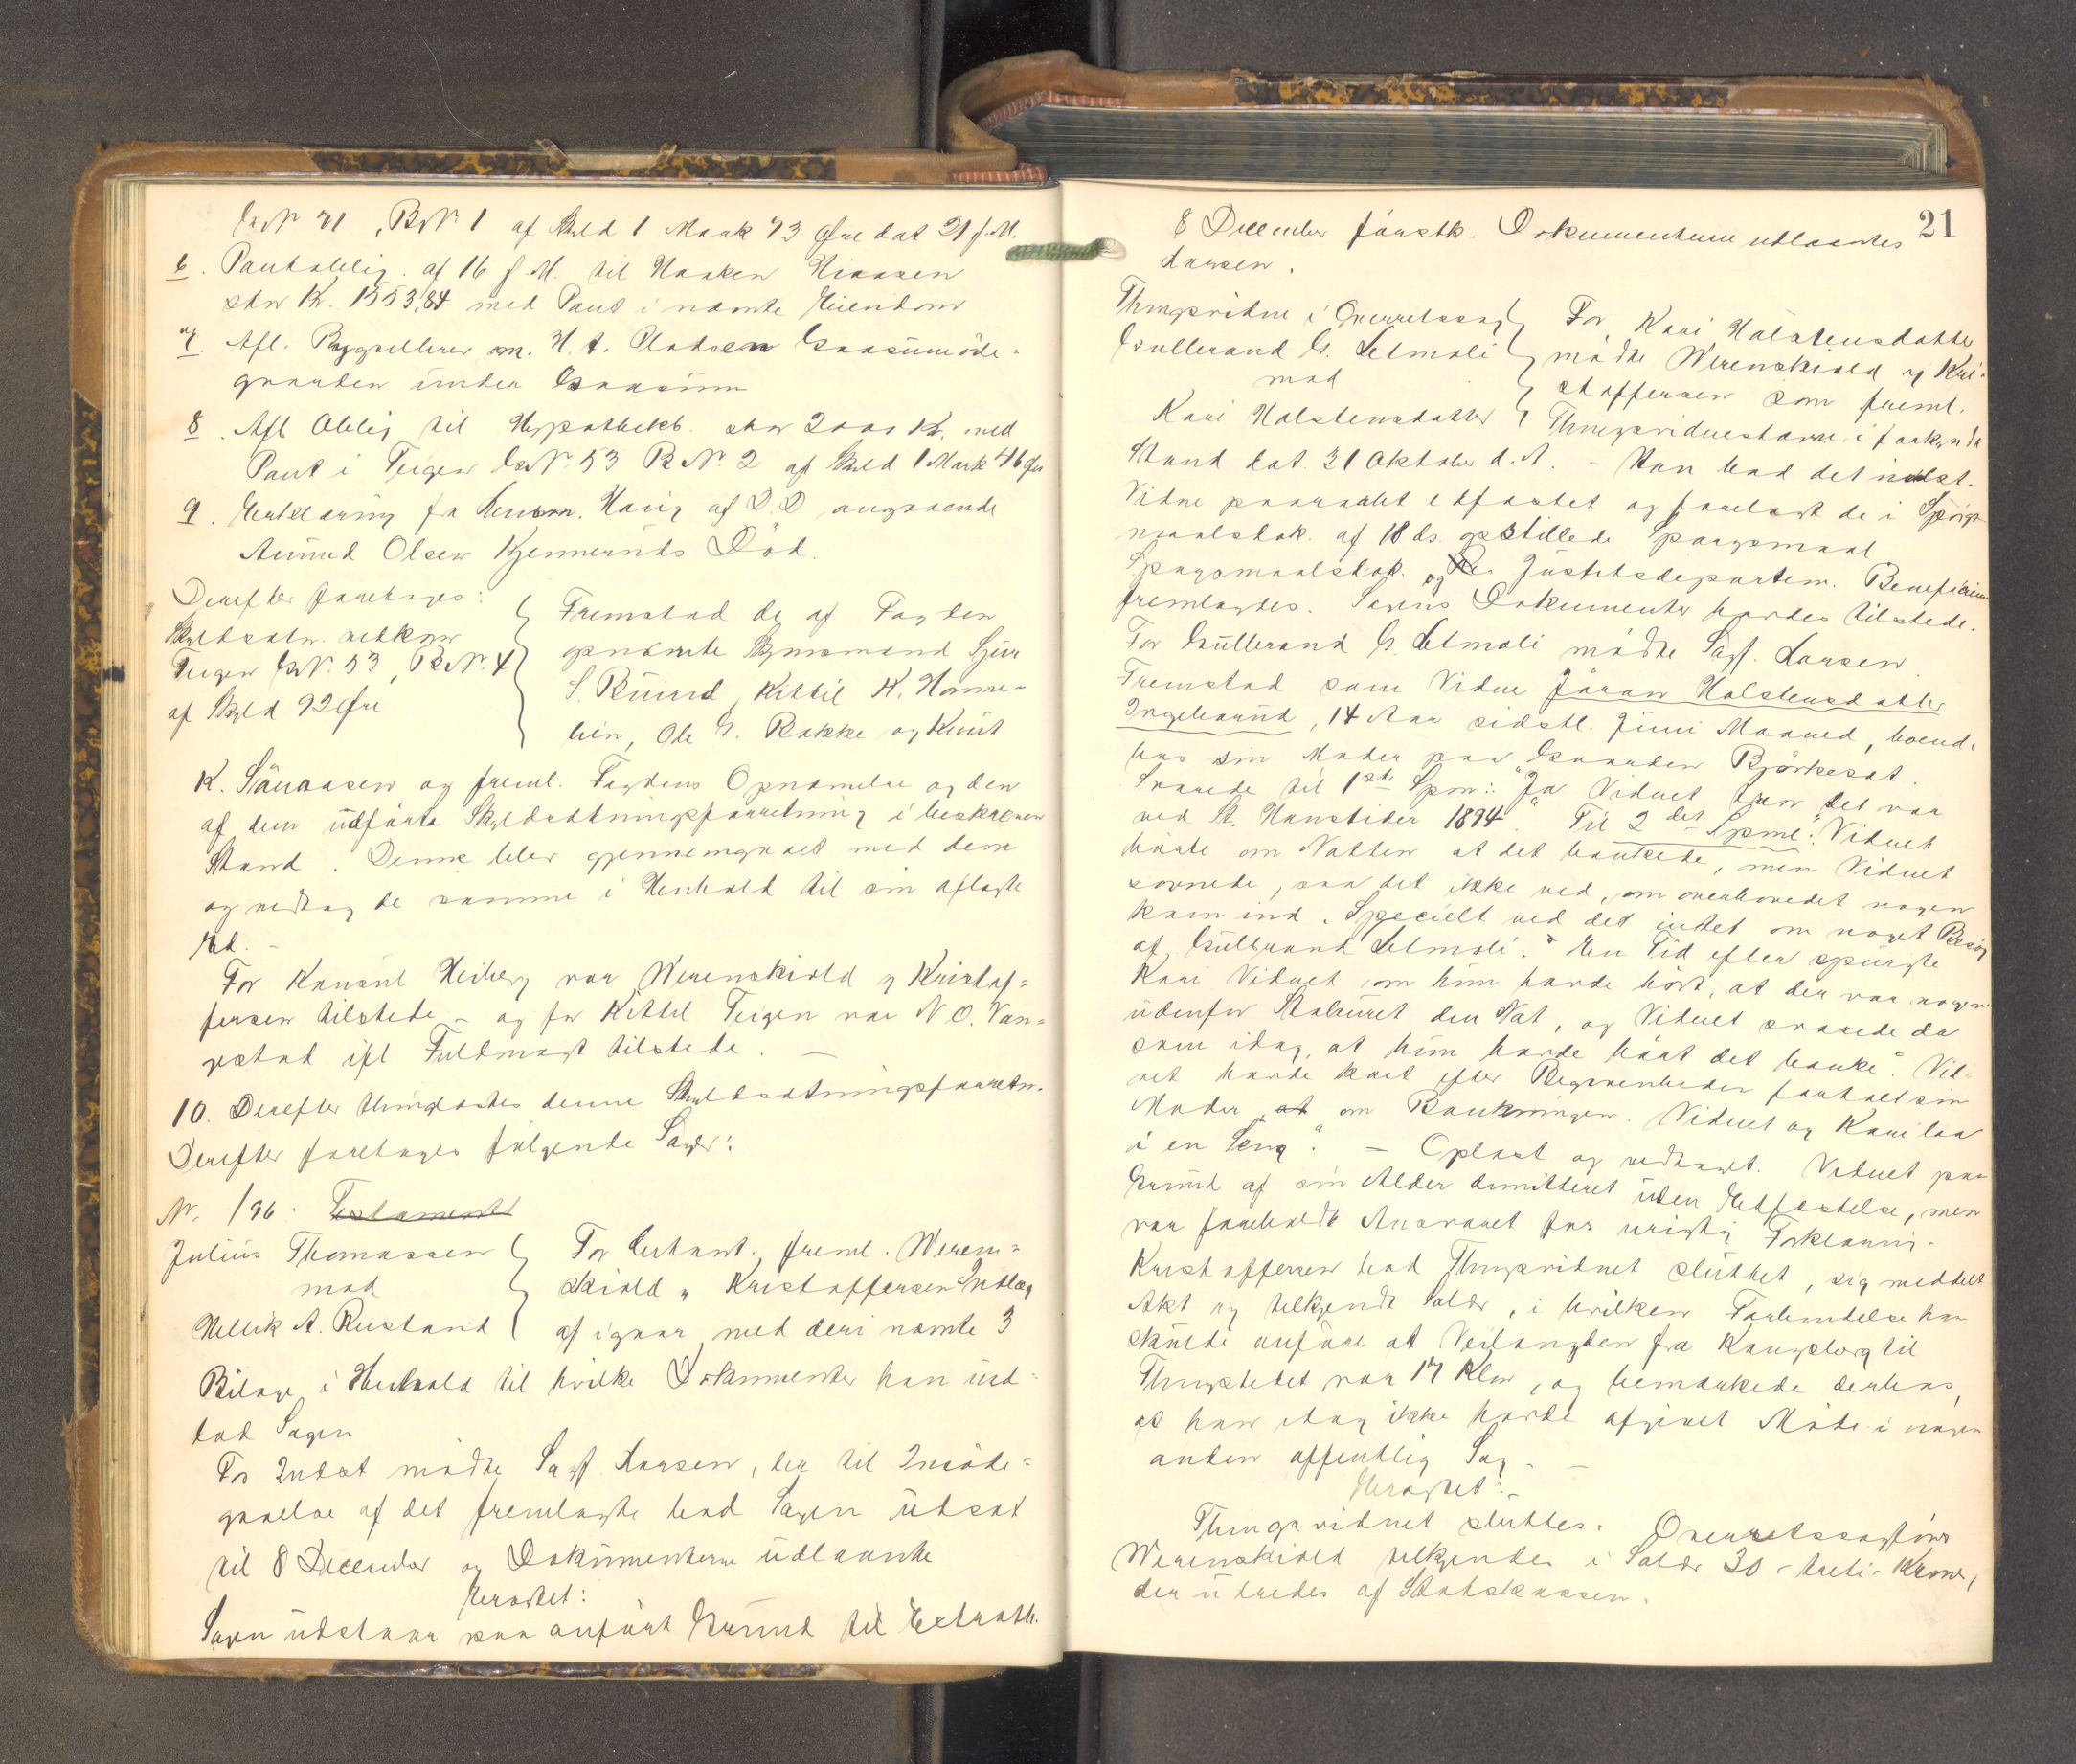 G.N. 71, B.N. 1 af Skyld 1 Mark 73 Øre dat 21 f.M.
6. Pantoblig. af 16 f.M. til Haaken
stor Kr. 1553,84 med Pant i nævnte Eiendom
7. Afl. m. H. A. Gaasumøde-
gaarden under Gaasum
8. Afl. Oblig til Hypothekb. stor 2000 Kr. med
Pant i Teigen G.N. 53 B.N. 2 af Skyld 1 Mark 46 Øre
9. Erklæring fra Lensm. af D.D angaaende
Amund Olsen Død.
Derefter foretoges:
Skyldsætn. vedkom
Teigen G.N. 53, B.N. 4
af Skyld 92 Øre
Fremstod de af Fogden
opnævnte Skjønsmænd Sjur
S. Kittil K.
Ole G. Bakke og Knut
K. og freml. Fogdens Opnævnelse og den
af dem udførte Skyldsætningsforretning i beskreven
Stand. Denne blev gjennemgaaet med dem
og vedtog de samme i Henhold til sin aflagte
Ed. -
For Konsul Heiberg var Werenskiold & Kristof-
fersen tilstede - og for Kittil Teigen var N. O. Van-
gestad ifl Fuldmagt tilstede. -
10. Derefter thinglæstes denne Skyldsætningsforretn.
Derefter foretoges følgende Sager:
Nr. 1/96: Testamentet
Julius Thomassen
mod
Hellik A. Rustand
For Citant. freml. Weren-
skiold & Kristoffersen Indlæg
af igaar med deri nævnte 3
Bilage i Henhold til hvilke Dokumenter han ind-
lod Sagen
For Indst mødte Sagf. Larsen, der til Imøde-
gaaelse af det fremlagte bad Sagen udsat
til 8 December og Dokumenterne udlaante
Eragtet:
Sagen udstaar paa anført Grund til Extrath.
21
8 December førstk. Dokumenterne udlaantes
Larsen.
Thingsvidne i Overretssag
Gulbrand G. Letmoli
mod
Kari Halstensdatter
For Kari Halstensdatter
mødte Werenskiold & Kri-
stoffersen som freml.
Thingsvidnestævn. i forkyndt
Stand dat. 31 Oktober d.A. - Han bad det indst.
Vidne paaraabt edfæstet og forelagt de i Spørgs-
maalsdok. af 18 ds. opstillede Spørgsmaal
Spørgsmaalsdok. og Justitsdepartem. Beneficium
fremlagdes. Sagens Dokumenter havdes tilstede.
For Gulbrand G. Letmoli mødte Sagf. Larsen
Fremstod som Vidne Jøran Halstensdatter
14 Aar sidstl. Juni Maaned, boende
hos sin Moder paa Gaarden Bjørkeset.
Svarede til 1ste Spm: "Ja Vidnet tror det var
ved St. Hanstider 1894". Til 2det Spml: "Vidnet
hørte om Natten at det bankede, men Vidnet
sovnede, saa det ikke ved, om overhovedet nogen
kom ind. Specielt ved det intet om noget Besøg
af Gulbrand Letmoli." En Tid efter spurgte
Kari Vidnet om hun havde hørt, at der var nogen
udenfor Stabburet den Nat, og Vidnet svarede da
som idag, at hun havde hørt det banke". Vid-
net havde kort efter Begivenheden fortalt sin
Moder at om Bankningen. Vidnet og Kari laa
i en Seng". - Oplæst og vedtaget. Vidnet paa
Grund af sin Alder demitteret uden Edfæstelse, men
var foreholdt Ansvaret for urigtig Forklaring.
Kristoffersen bad Thingsvidnet sluttet, sig meddelt
Akt og tilkjendt Salær, i hvilken Forbindelse han
skulde anføre at Veilængden fra Kongsberg til
Thingstedet var 17 Klm, og bemærkede derhos,
at han idag ikke havde afgivet Møde i nogen
anden offentlig Sag. -
Eragtet: -
Thingsvidnet sluttes. Overretssagfører
Werenskiold tilkjendes i Salær 30 - treti - Kroner,
der udredes af Statskassen.